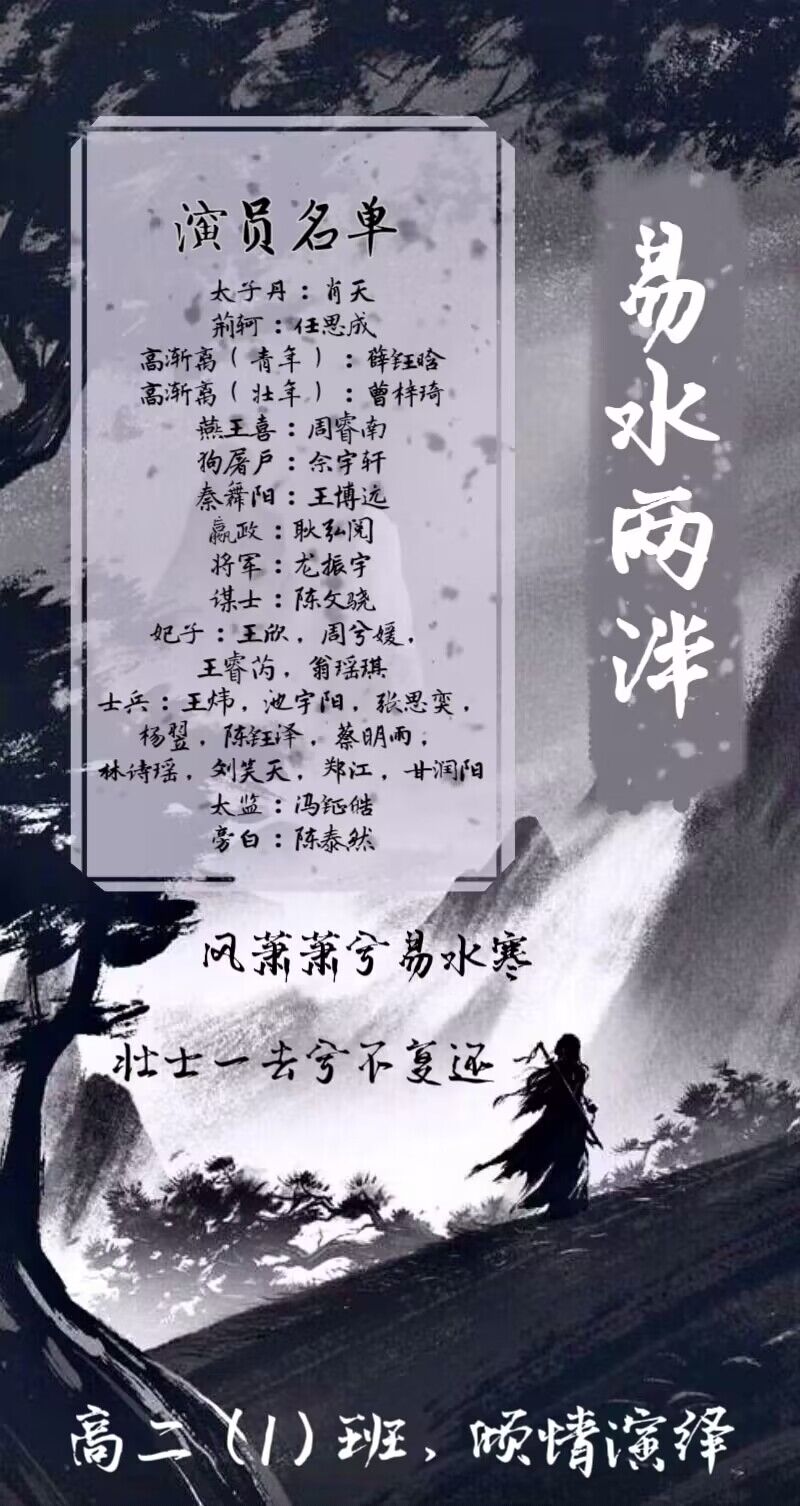 易水两泮
演员名单
太子丹：肖天
荆轲：任思成
高渐离（青年）：薛钰晗
高渐离（壮年）：曾梓琦
燕王喜：周睿南
狗屠户：佘宇轩
秦舞阳：王博远
嬴政：耿弘阅
将军：龙振宇
谋士：陈文骁
妃子：王欣，周兮媛，
王睿芮，翁瑶琪
士兵：王炜，池宇阳，张思奕，
杨翌，陈钰泽，蔡明雨，
林诗瑶，刘笑天，郑江，甘润阳
太监：冯钲皓
旁白：陈泰然
风萧萧兮易水寒
壮士一去兮不复还
高二（1）班，倾情演绎